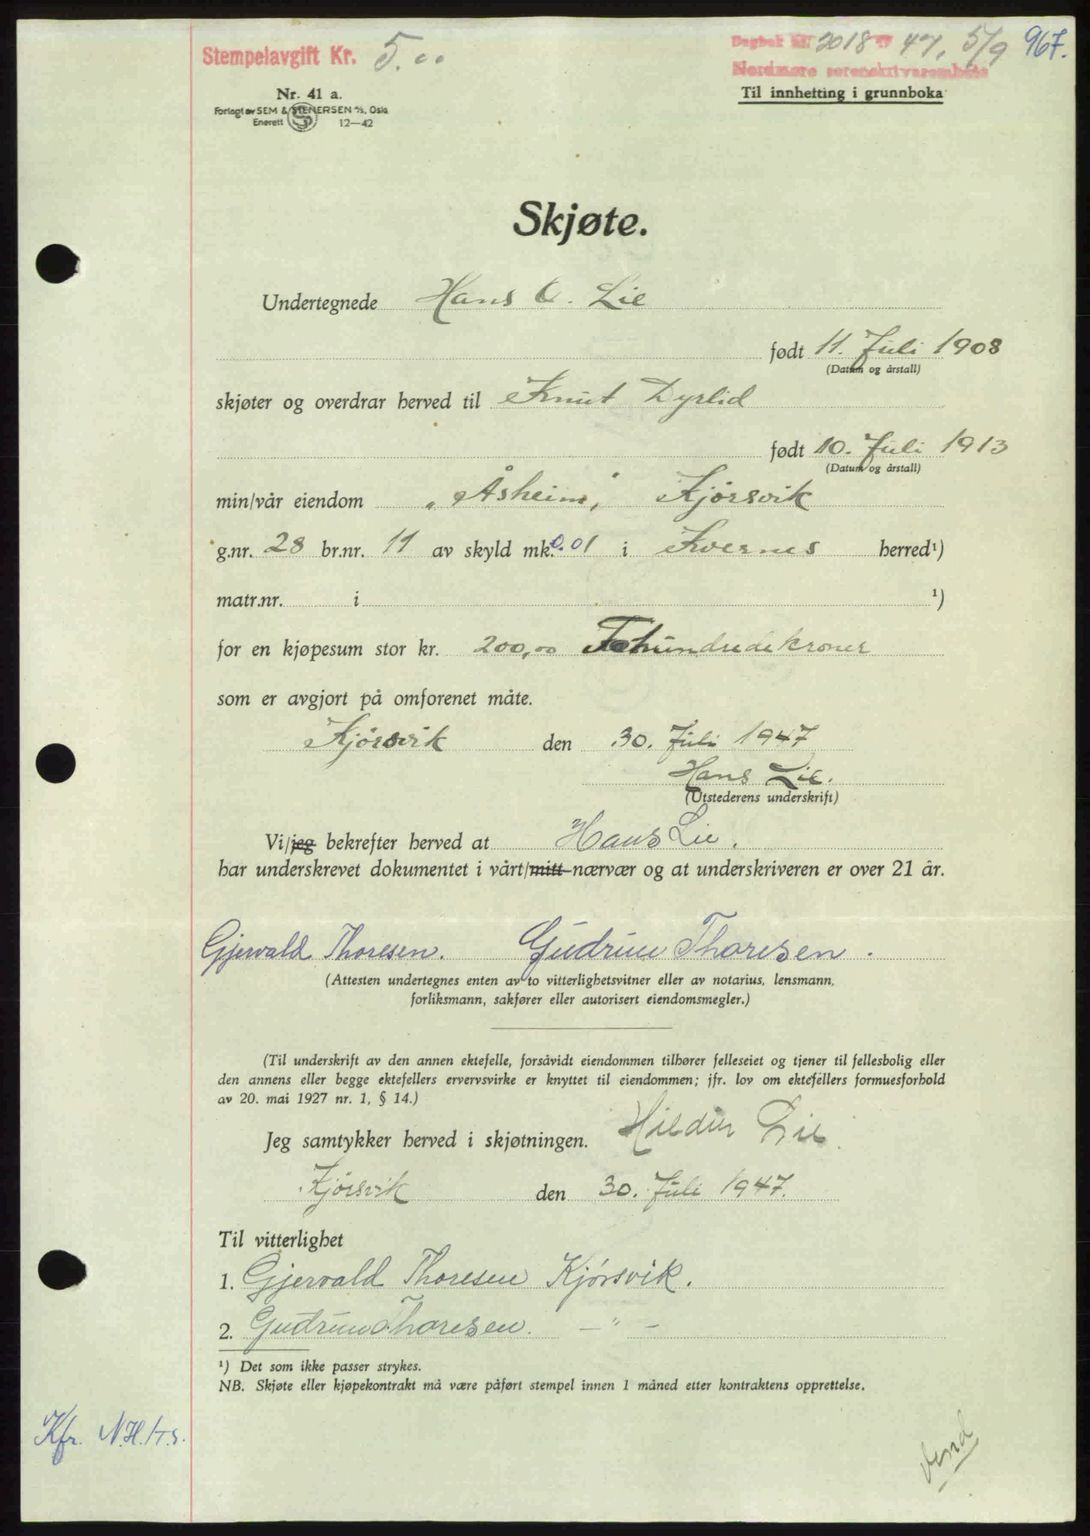 Stempelavgift Kr. 5.00
Dagbok nr. 2018 47, 5/9 967.
Nordmøre sorenskriverembete
Nr. 41 a.
Til innhetting i grunnboka
Forlagt av SEM & STENERSEN A/S, Oslo
Enerett 12—42
Skjøte.
Undertegnede Hans O. Lie
født 11. Juli 1908
(Datum og årstall)
skjøter og overdrar herved til Knut Dyrlid
født 10. Juli 1913
(Datum og årstall)
min/vår eiendom „Åsheim," Kjørsvik
g.nr. 28 br.nr. 11 av skyld mk. 0.01 i Kvernes herred¹)
matr.nr. i ¹)
for en kjøpesum stor kr. 200,00 Tohundredekroner
som er avgjort på omforenet måte.
Kjørsvik den 30. Juli 1947
Hans Lie.
(Utstederens underskrift)
Vi/jeg bekrefter herved at Hans Lie.
har underskrevet dokumentet i vårt/mitt nærvær og at underskriveren er over 21 år.
Gjervald Thoresen. Gudrun Thoresen.
(Attesten undertegnes enten av to vitterlighetsvitner eller av notarius, lensmann,
forliksmann, sakfører eller autorisert eiendomsmegler.)
(Til underskrift av den annen ektefelle, forsåvidt eiendommen tilhører felleseiet og tjener til fellesbolig eller
den annens eller begge ektefellers ervervsvirke er knyttet til eiendommen; jfr. lov om ektefellers formuesforhold
av 20. mai 1927 nr. 1, § 14.)
Jeg samtykker herved i skjøtningen. Hildur Lie.
Kjørsvik den 30. Juli 1947.
Til vitterlighet
1. Gjervald Thoresen Kjørsvik.
2. Gudrun Thoresen. — " —
¹) Det som ikke passer strykes.
NB. Skjøte eller kjøpekontrakt må være påført stempel innen 1 måned etter kontraktens opprettelse.
Kfr. N.H.
vend